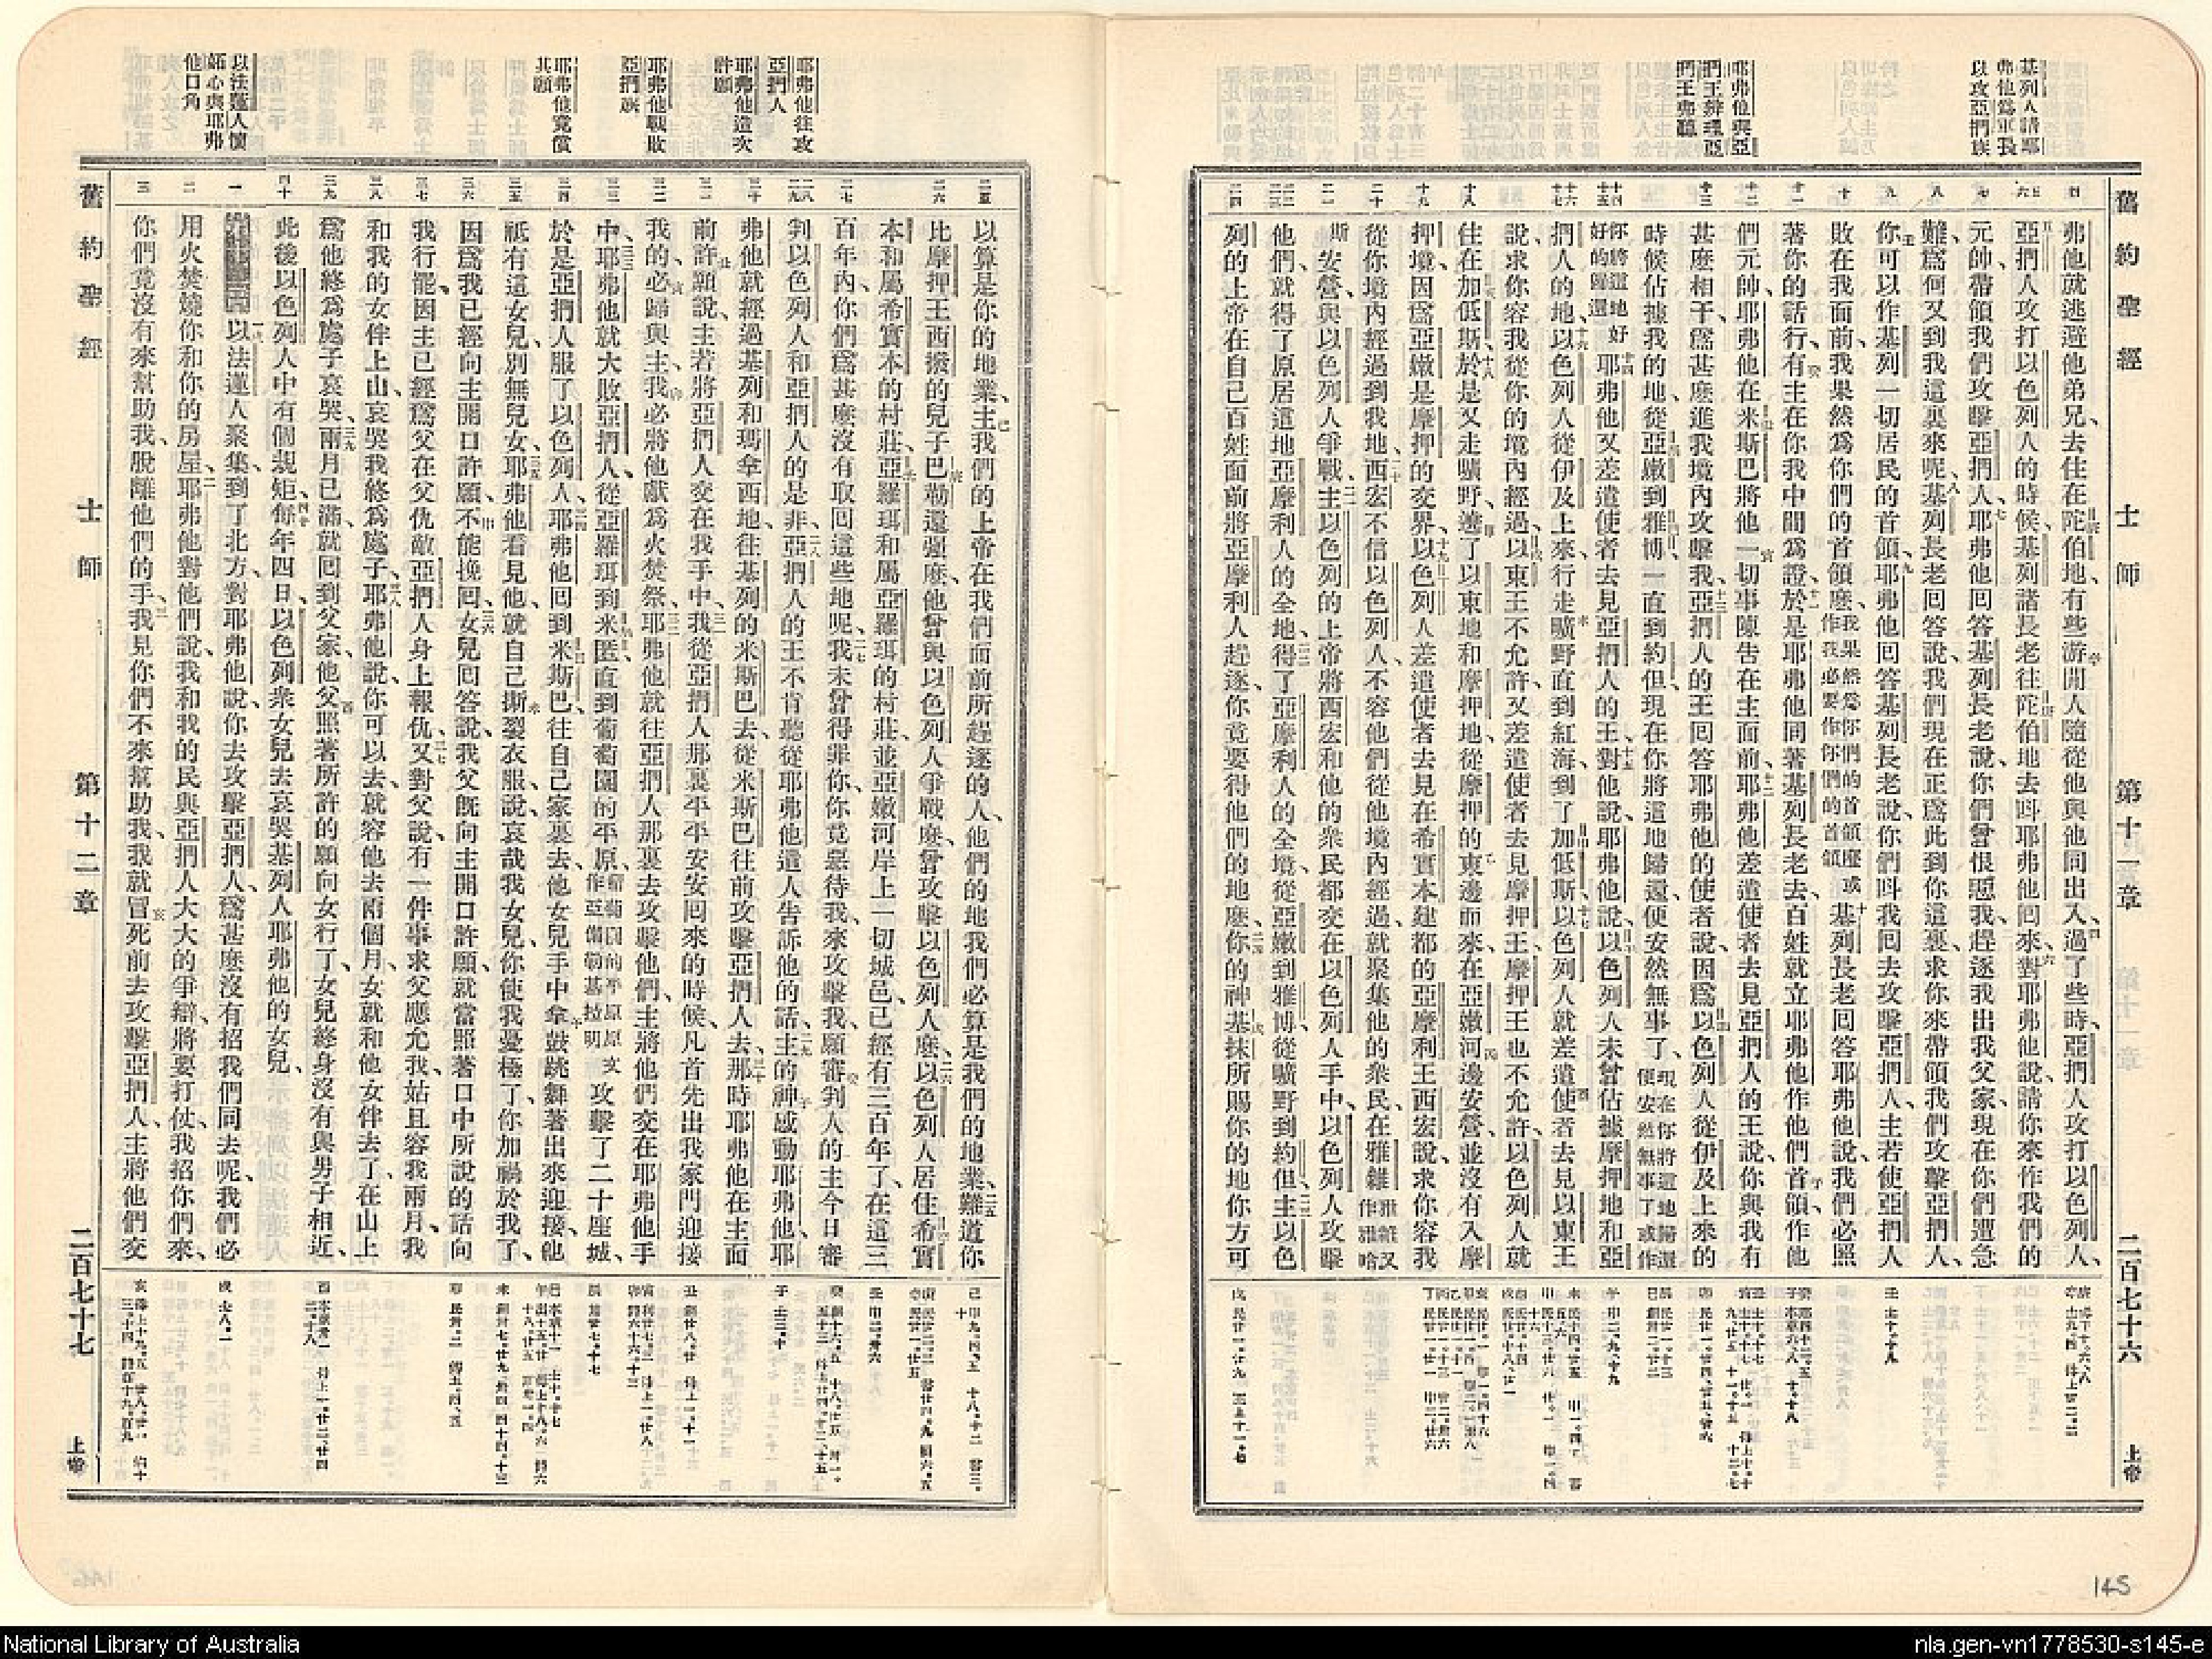 基列人請耶
弗他爲軍長
以攻亞捫族
耶弗他與亞
捫王辨理亞
捫王弗聽
舊約聖經 士師 第十一章 二百七十六 上帝
弗他就逃避他弟兄、去住在陀伯地、有些游閒人隨從他與他同出入、過了些時、亞捫人攻打以色列人、
亞捫人攻打以色列人的時候、基列諸長老往陀伯地去呌耶弗他囘來、對耶弗他說、請你來作我們的
元帥、帶領我們攻擊亞捫人、耶弗他囘答基列長老說、你們曾恨惡我、趕逐我出我父家、現在你們遭急
難、爲何又到我這裏來呢、基列長老囘答說、我們現在正爲此到你這裏、求你來帶領我們攻擊亞捫人、
你可以作基列一切居民的首領、耶弗他囘答基列長老說、你們呌我囘去攻擊亞捫人、主若使亞捫人
敗在我面前、我果然爲你們的首領麽、我果然爲你們的首領麽或作我必要作你們的首領 基列長老囘答耶弗他說、我們必照
著你的話行、有主在你我中間爲證、於是耶弗他同著基列長老去、百姓就立耶弗他作他們首領、作他
們元帥、耶弗他在米斯巴將他一切事陳告在主面前、耶弗他差遣使者去見亞捫人的王說、你與我有
甚麽相干、爲甚麽進我境內攻擊我、亞捫人的王囘答耶弗他的使者說、因爲以色列人從伊及上來的
時候、佔據我的地、從亞嫩到雅博、一直到約但、現在你將這地歸還、便安然無事了、現在你將這地歸還便安然無事了或作
你將這地好好的歸還 耶弗他又差遣使者去見亞捫人的王、對他說、耶弗他說、以色列人未曾佔據摩押地和亞
捫人的地、以色列人從伊及上來、行走曠野直到紅海、到了加低斯、以色列人就差遣使者去見以東王
說、求你容我從你的境內經過、以東王不允許、又差遣使者去見摩押王、摩押王也不允許、以色列人就
住在加低斯、於是又走曠野、遶了以東地和摩押地、從摩押的東邊而來、在亞嫩河邊安營、並沒有入摩
押境、因爲亞嫩是摩押的交界、以色列人差遣使者去見在希實本建都的亞摩利王西宏說、求你容我
從你境內經過到我地、西宏不信以色列人、不容他們從他境內經過、就聚集他的衆民、在雅雜 雅雜又作雅哈
斯 安營、與以色列人爭戰、主以色列的上帝將西宏和他的衆民都交在以色列人手中、以色列人攻擊
他們、就得了原居這地亞摩利人的全地、得了亞摩利人的全境、從亞嫩到雅博、從曠野到約但、主以色
列的上帝在自己百姓面前將亞摩利人趕逐、你竟要得他們的地麽、你的神基抹所賜你的地你方可
耶弗他往攻
亞捫人
耶弗他造次
許願
耶弗他戰敗
亞捫族
耶弗他竟償
其願
以法蓮人懷
妬心與耶弗
他口角
以算是你的地業、主我們的上帝在我們面前所趕逐的人、他們的地我們必算是我們的地業、難道你
比摩押王西撥的兒子巴勒還强麽、他曾與以色列人爭戰麽、曾攻擊以色列人麽、以色列人居住希實
本和屬希實本的村莊、亞羅珥和屬亞羅珥的村莊、並亞嫩河岸上一切城邑、已經有三百年了、在這三
百年內、你們爲甚麽沒有取囘這些地呢、我未曾得罪你、你竟惡待我、來攻擊我、願審判人的主今日審
判以色列人和亞捫人的是非、亞捫人的王不肯聽從耶弗他遣人告訴他的話、主的神感動耶弗他、耶
弗他就經過基列和瑪拿西地、往基列的米斯巴去、從米斯巴往前攻擊亞捫人去、那時耶弗他在主面
前許願說、主若將亞捫人交在我手中、我從亞捫人那裏平平安安囘來的時候、凡首先出我家門迎接
我的、必歸與主、我必將他獻爲火焚祭、耶弗他就往亞捫人那裏去攻擊他們、主將他們交在耶弗他手
中、耶弗他就大敗亞捫人、從亞羅珥到米匿、直到葡萄園的平原、葡萄園的平原原文作亞備勒基拉明 攻擊了二十座城、
於是亞捫人服了以色列人、耶弗他囘到米斯巴、往自己家裏去、他女兒手中拿鼓跳舞著出來迎接、他
祇有這女兒、別無兒女、耶弗他看見他、就自己撕裂衣服、說、哀哉我女兒、你使我憂極了、你加禍於我了、
因爲我已經向主開口許願、不能挽囘、女兒囘答說、我父旣向主開口許願、就當照著口中所說的話向
我行罷、因主已經爲父在父仇敵亞捫人身上報仇、又對父說、有一件事求父應允我、姑且容我兩月、我
和我的女伴上山、哀哭我終爲處子、耶弗他說、你可以去、就容他去兩個月、女就和他女伴去了、在山上
爲他終爲處子哀哭、兩月已滿、就囘到父家、他父照著所許的願向女行了、女兒終身沒有與男子相近、
此後以色列人中有個規矩、每年四日、以色列衆女兒去哀哭基列人耶弗他的女兒、
第十二章 以法蓮人聚集、到了北方、對耶弗他說、你去攻擊亞捫人、爲甚麽沒有招我們同去呢、我們必
用火焚燒你和你的房屋、耶弗他對他們說、我和我的民與亞捫人大大的爭辯、將要打仗、我招你們來、
你們竟沒有來幫助我、脫離他們的手、我見你們不來幫助我、我就冒死前去攻擊亞捫人、主將他們交
舊約聖經 士師 第十二章 二百七十七 上帝
145
National Library of Australia
nla.gen-vn1778530-s145-e